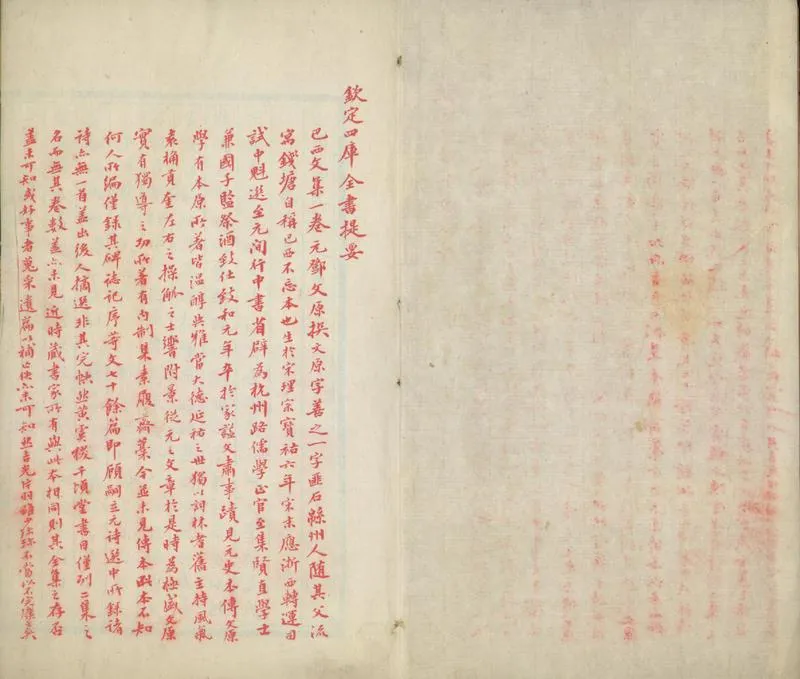 欽定四庫全書提要
巴西文集一卷元鄧文原撰文原字善之一字匪石緜州人随其父流
寓錢塘自稱巴西不忘本也生於宋理宗寳祐六年宋末應浙西轉運司
試中魁選至元間行中書省辟為杭州路儒學正官至集賢直學士
兼國子監祭酒致仕致和元年卒於家謚文肅事蹟見元史本傳文原
學有本原所著皆温醇典雅當大德延祐之世獨以詞林耆舊主持風氣
袁桷貢奎左右之操觚之士響附景從元之文章於是時為極盛文原
實有獨導之功所著有内制集素履齋藁今並未見傳本此本不知
何人所編僅録其碑誌記序等文七十餘篇即顧嗣立元詩選中所録諸
詩亦無一首蓋出後人摘選非其完帙然黄虞稷千頃堂書目僅列二集之
名而無其卷數蓋亦未見近時藏書家所有與此本相同則其全集之存否
蓋未可知或好事者蒐采遺篇以補其佚亦未可知然吉光片羽雖少彌珍不當以不完廢矣